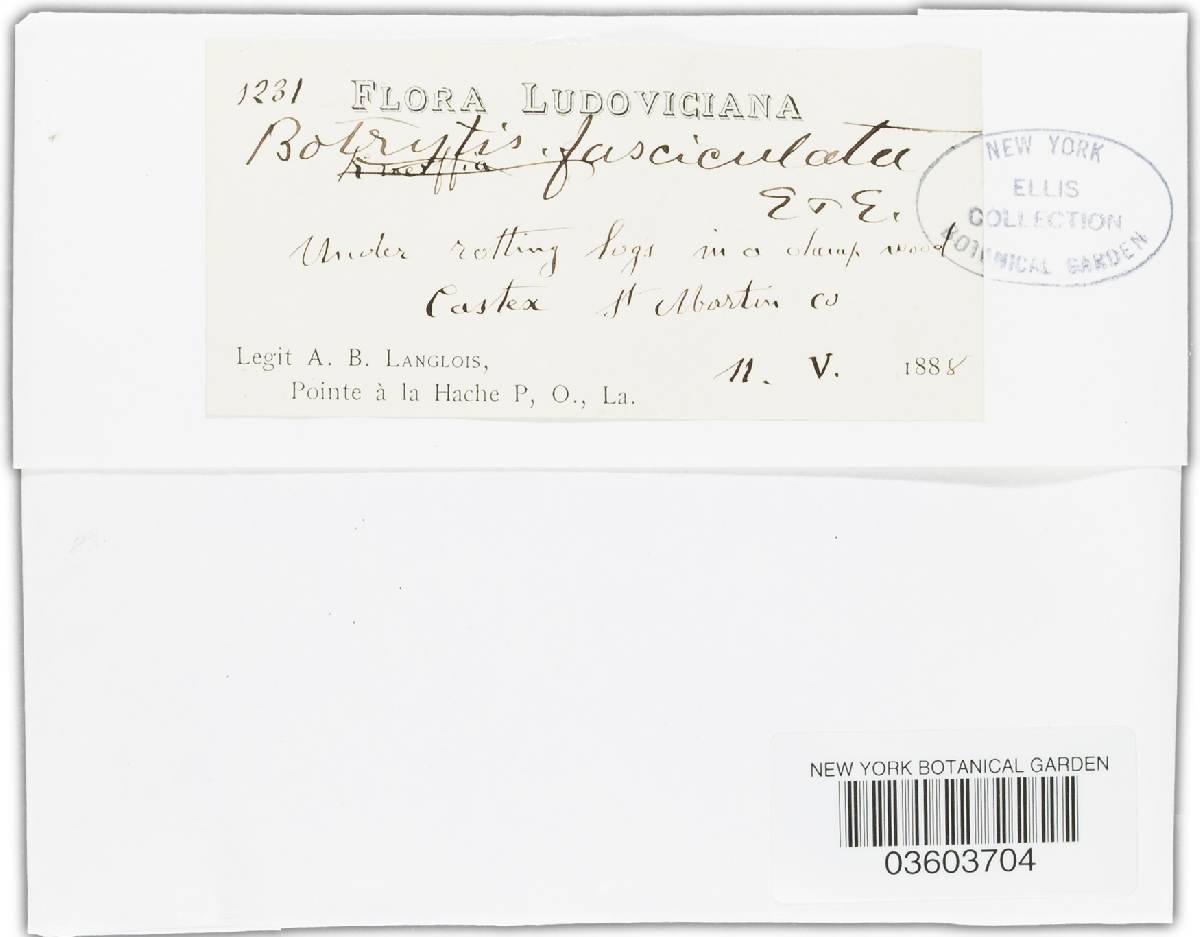 1231 FLORA LUDOVICIANA
Botrytis fasciculata
E & E.
Under rotting logs in a damp wood
Castex St Martin co
Legit A. B. LANGLOIS,
Pointe à la Hache P, O., La.
11. V. 1888
NEW YORK
ELLIS
COLLECTION
BOTANICAL GARDEN
NEW YORK BOTANICAL GARDEN
03603704